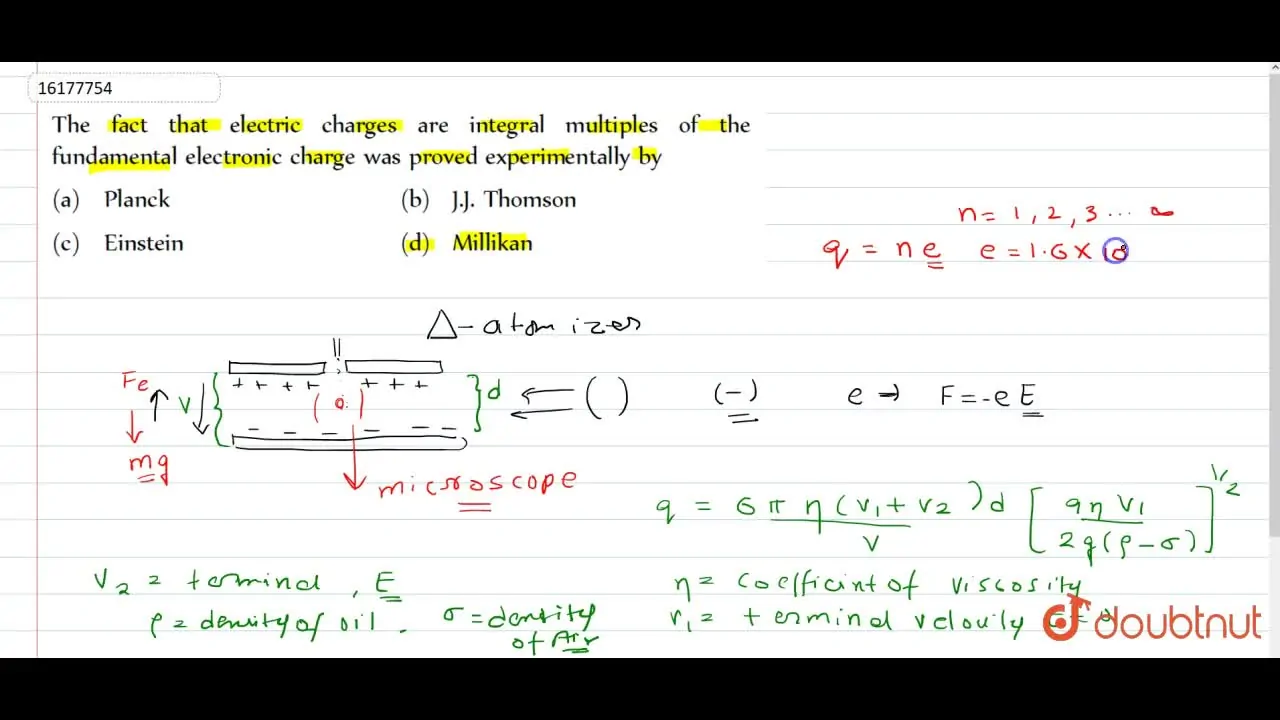 16177754
The fact that electric charges are integral multiples of the
fundamental electronic charge was proved experimentally by
(a) Planck (b) J.J. Thomson
(c) Einstein (d) Millikan
n = 1, 2, 3 ... ∞
q = ne e = 1.6 × 10
Δ - atomizer
+ + + + + + +
Fe
V d
(-) e → F = -e E
- - - - - - -
mg
microscope
q = 6 π η (v1 + v2) d / V [ 9η V1 / 2g(ρ - σ) ] 1/2
V2 = terminal, E
η = coefficint of viscosity
ρ = density of oil. σ = density of Air
v1 = terminal velouily E = 0
doubtnut